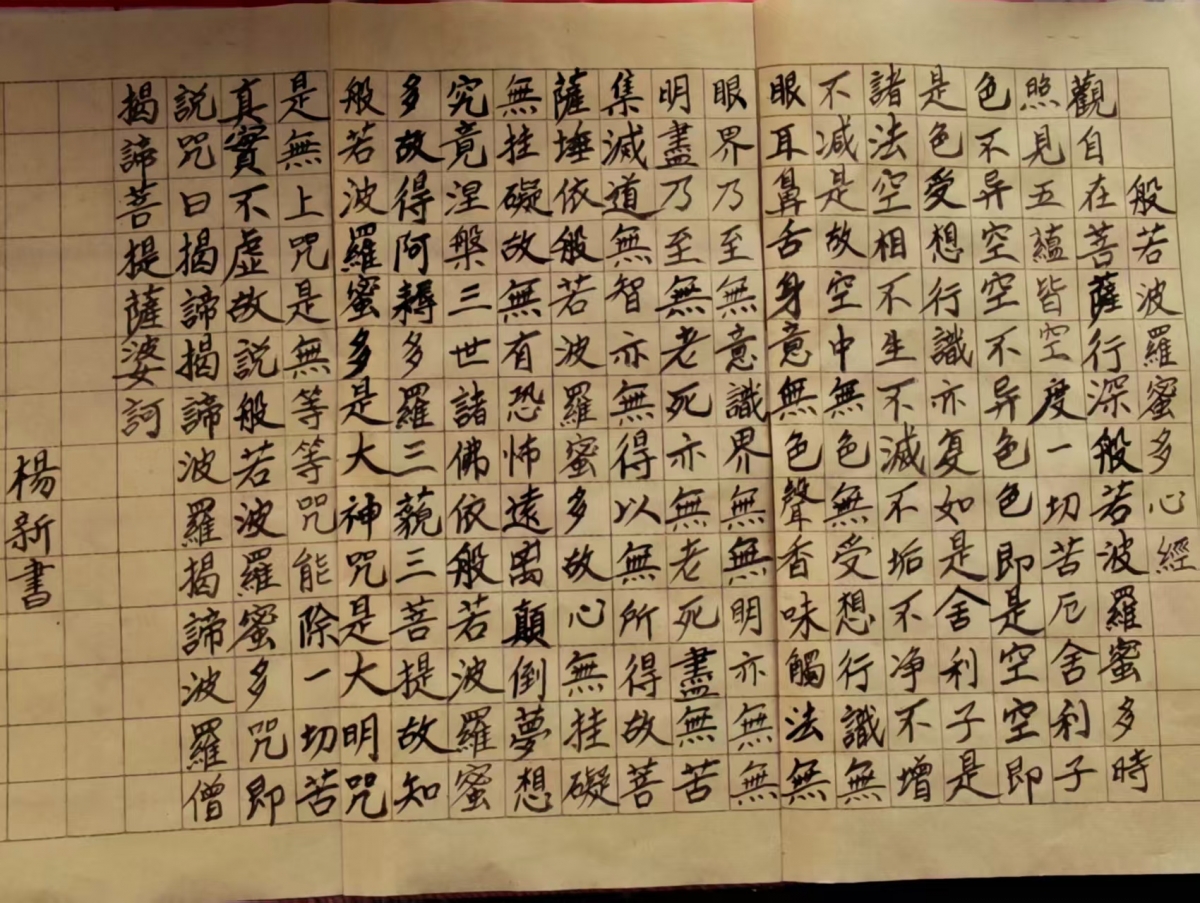 般若波羅蜜多心經
觀自在菩薩行深般若波羅蜜多時
照見五蘊皆空度一切苦厄舍利子
色不异空空不异色色即是空空即
是色受想行識亦复如是舍利子是
諸法空相不生不滅不垢不净不增
不减是故空中無色無受想行識無
眼耳鼻舌身意無色聲香味觸法無
眼界乃至無意識界無無明亦無無
明盡乃至無老死亦無老死盡無苦
集滅道無智亦無得以無所得故菩
薩埵依般若波羅蜜多故心無挂礙
無挂礙故無有恐怖遠离顛倒夢想
究竟涅槃三世諸佛依般若波羅蜜
多故得阿耨多羅三藐三菩提故知
般若波羅蜜多是大神咒是大明咒
是無上咒是無等等咒能除一切苦
真實不虛故説般若波羅蜜多咒即
説咒曰揭諦揭諦波羅揭諦波羅僧
揭諦菩提薩婆訶
楊新書